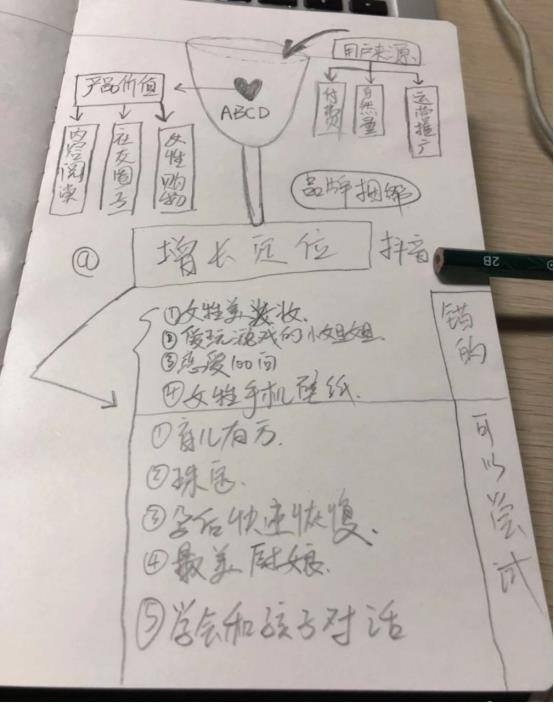 用户来源
产品价值
ABCD
付费
自然量
运营推广
内容阅读
社交圈子
女性购物
品牌捆绑
@
增长定位
抖音
2B
①女性美妆
②爱玩游戏的小姐姐
③恋爱100问
④女性手机壁纸
错的
①育儿有方.
②珠宝.
③孕后快速恢复.
④最美厨娘.
⑤学会和孩子对话
可以尝试